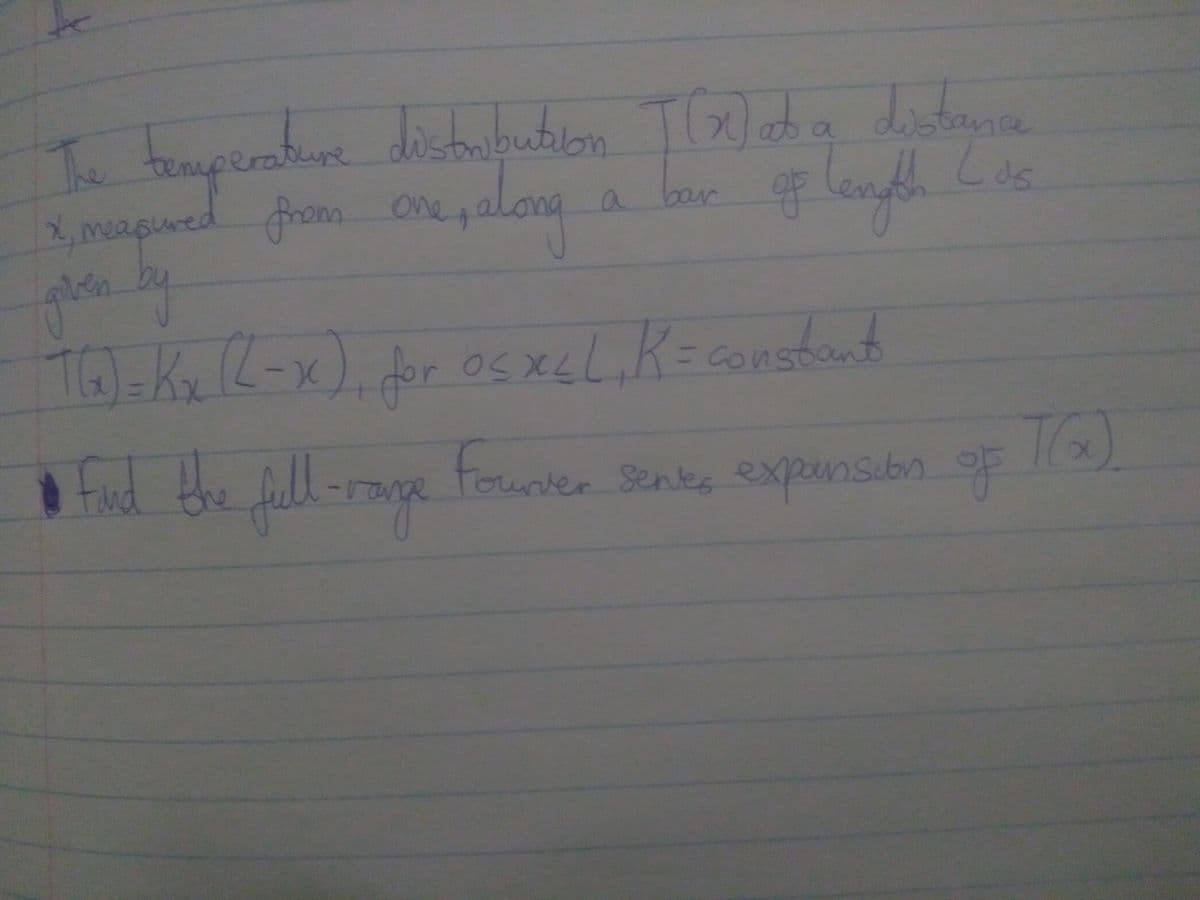 The temperature distribution T(x) at a distance
x, measured from one, along a bar of length L is
given by
T(x) = Kx (L-x), for 0≤x≤L, K = constant
Find the full-range Fourier series expansion of T(x).